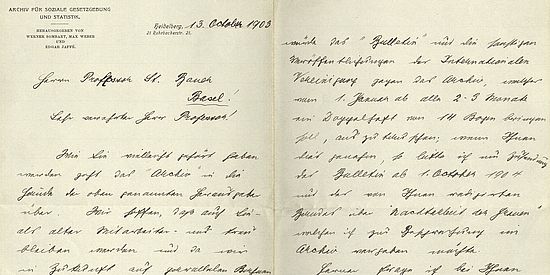 ARCHIV FÜR SOZIALE GESETZGEBUNG
UND STATISTIK.
HERAUSGEGEBEN VON
WERNER SOMBART, MAX WEBER
UND
EDGAR JAFFÉ.
Heidelberg, 13. October 1903
Herrn Professor St. Bauer
Basel!
Sehr verehrter Herr Professor!
Wie Sie vielleicht gehört haben
werden geht das "Archiv" in die
Hände der oben genannten Herausgeber
über. Wir hoffen, dass auch Sie
als alter Mitarbeiter uns treu
bleiben werden und da wir
in Zukunft auf
würde das "Bulletin" und die sonstigen
Veröffentlichungen der Internationalen
Vereinigung gegen das Archiv, welches
vom 1. Januar ab alle 2-3 Monate
ein Doppelheft von 14 Bogen bringen
soll, auszutauschen; wenn Ihnen
das genehm, so bitte ich um Zusendung
des Bulletin ab 1. October
und des von Ihnen
Bandes über Nachtarbeit der Frauen
welchen ich zur Besprechung im
Archiv vergeben möchte.
Ferner frage ich bei Ihnen